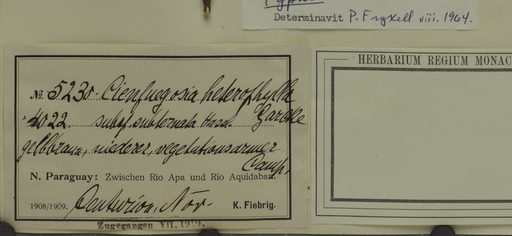 Determinavit P. Fryxell viii. 1964.
HERBARIUM REGIUM MONAC
No. 5230 Cienfuegosia heterophylla
4022. subsp. subternata Hassl. Garcke
gelbbraun, niederer, vegetationsarmer
Camp.
N. Paraguay: Zwischen Rio Apa und Rio Aquidaban.
1908/1909. Centurion, Nov. K. Fiebrig.
Zugegangen VII.